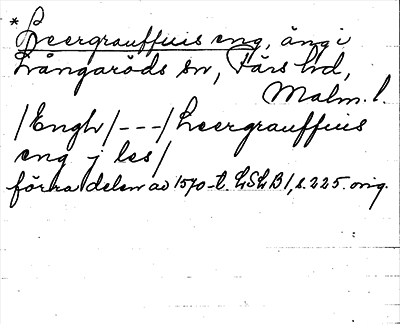 * Leergrauffuis eng, äng i
Långaröds sn, Färs hd,
Malm. l.
/Engh/---/Leergrauffuis
eng j les/
förra delen av 1570-t. LSLB1, s. 225. orig.